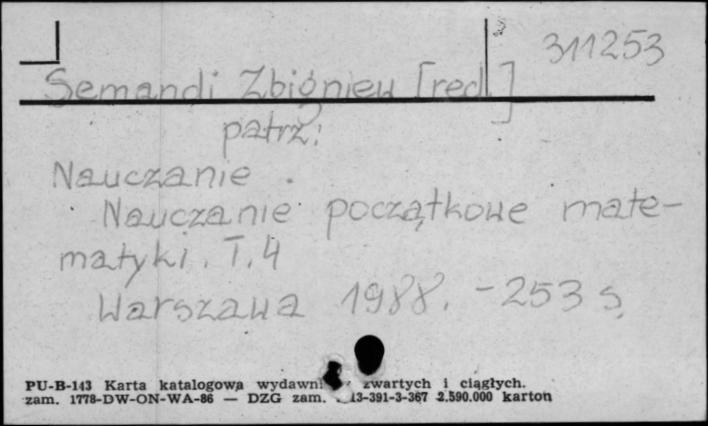 311253
Semandi Zbigniew [red.]
patrz:
Nauczanie .
Nauczanie początkowe mate-
matyki. T. 4
Warszawa 1988. - 253 s.
PU-B-143 Karta katalogowa zwartych i ciągłych.
zam. 1778-DW-ON-WA-86 — DZG zam. 13-391-3-367 2.590.000 karton